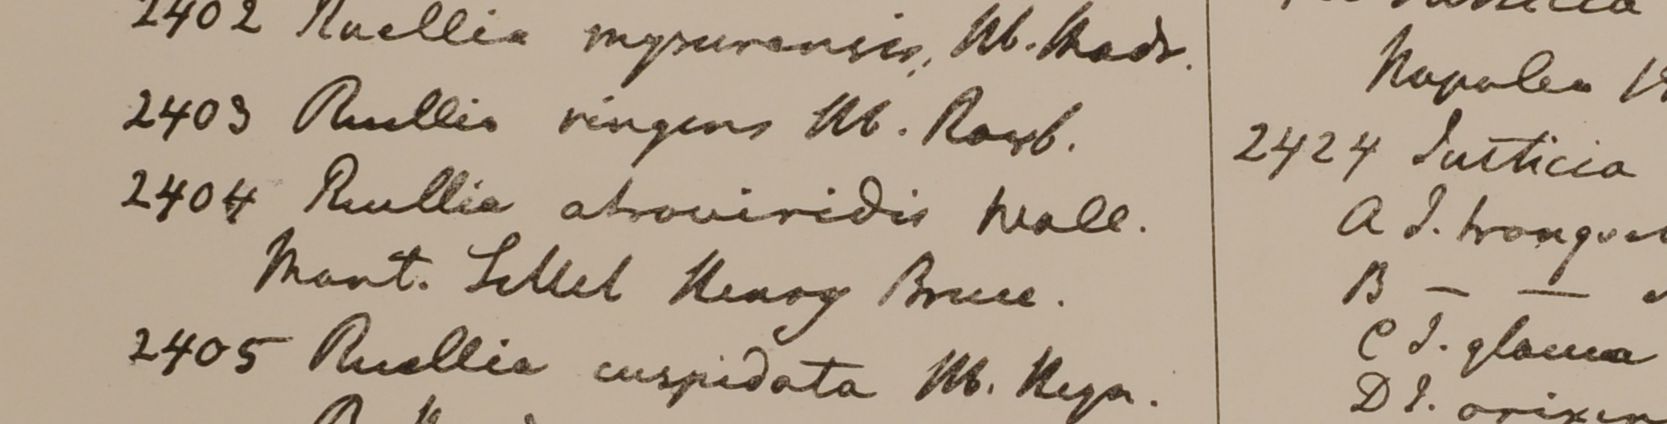 2402 Ruellia mysurensis, Hb. Madr.
2403 Ruellia ringens Hb. Roxb.
2404 Ruellia atroviridis Wall.
Mont. Sillet Henry Bruce.
2405 Ruellia cuspidata Hb. Heyn.
Napalea
2424 Justicia
A J.
B — —
C J. glauca
D J.